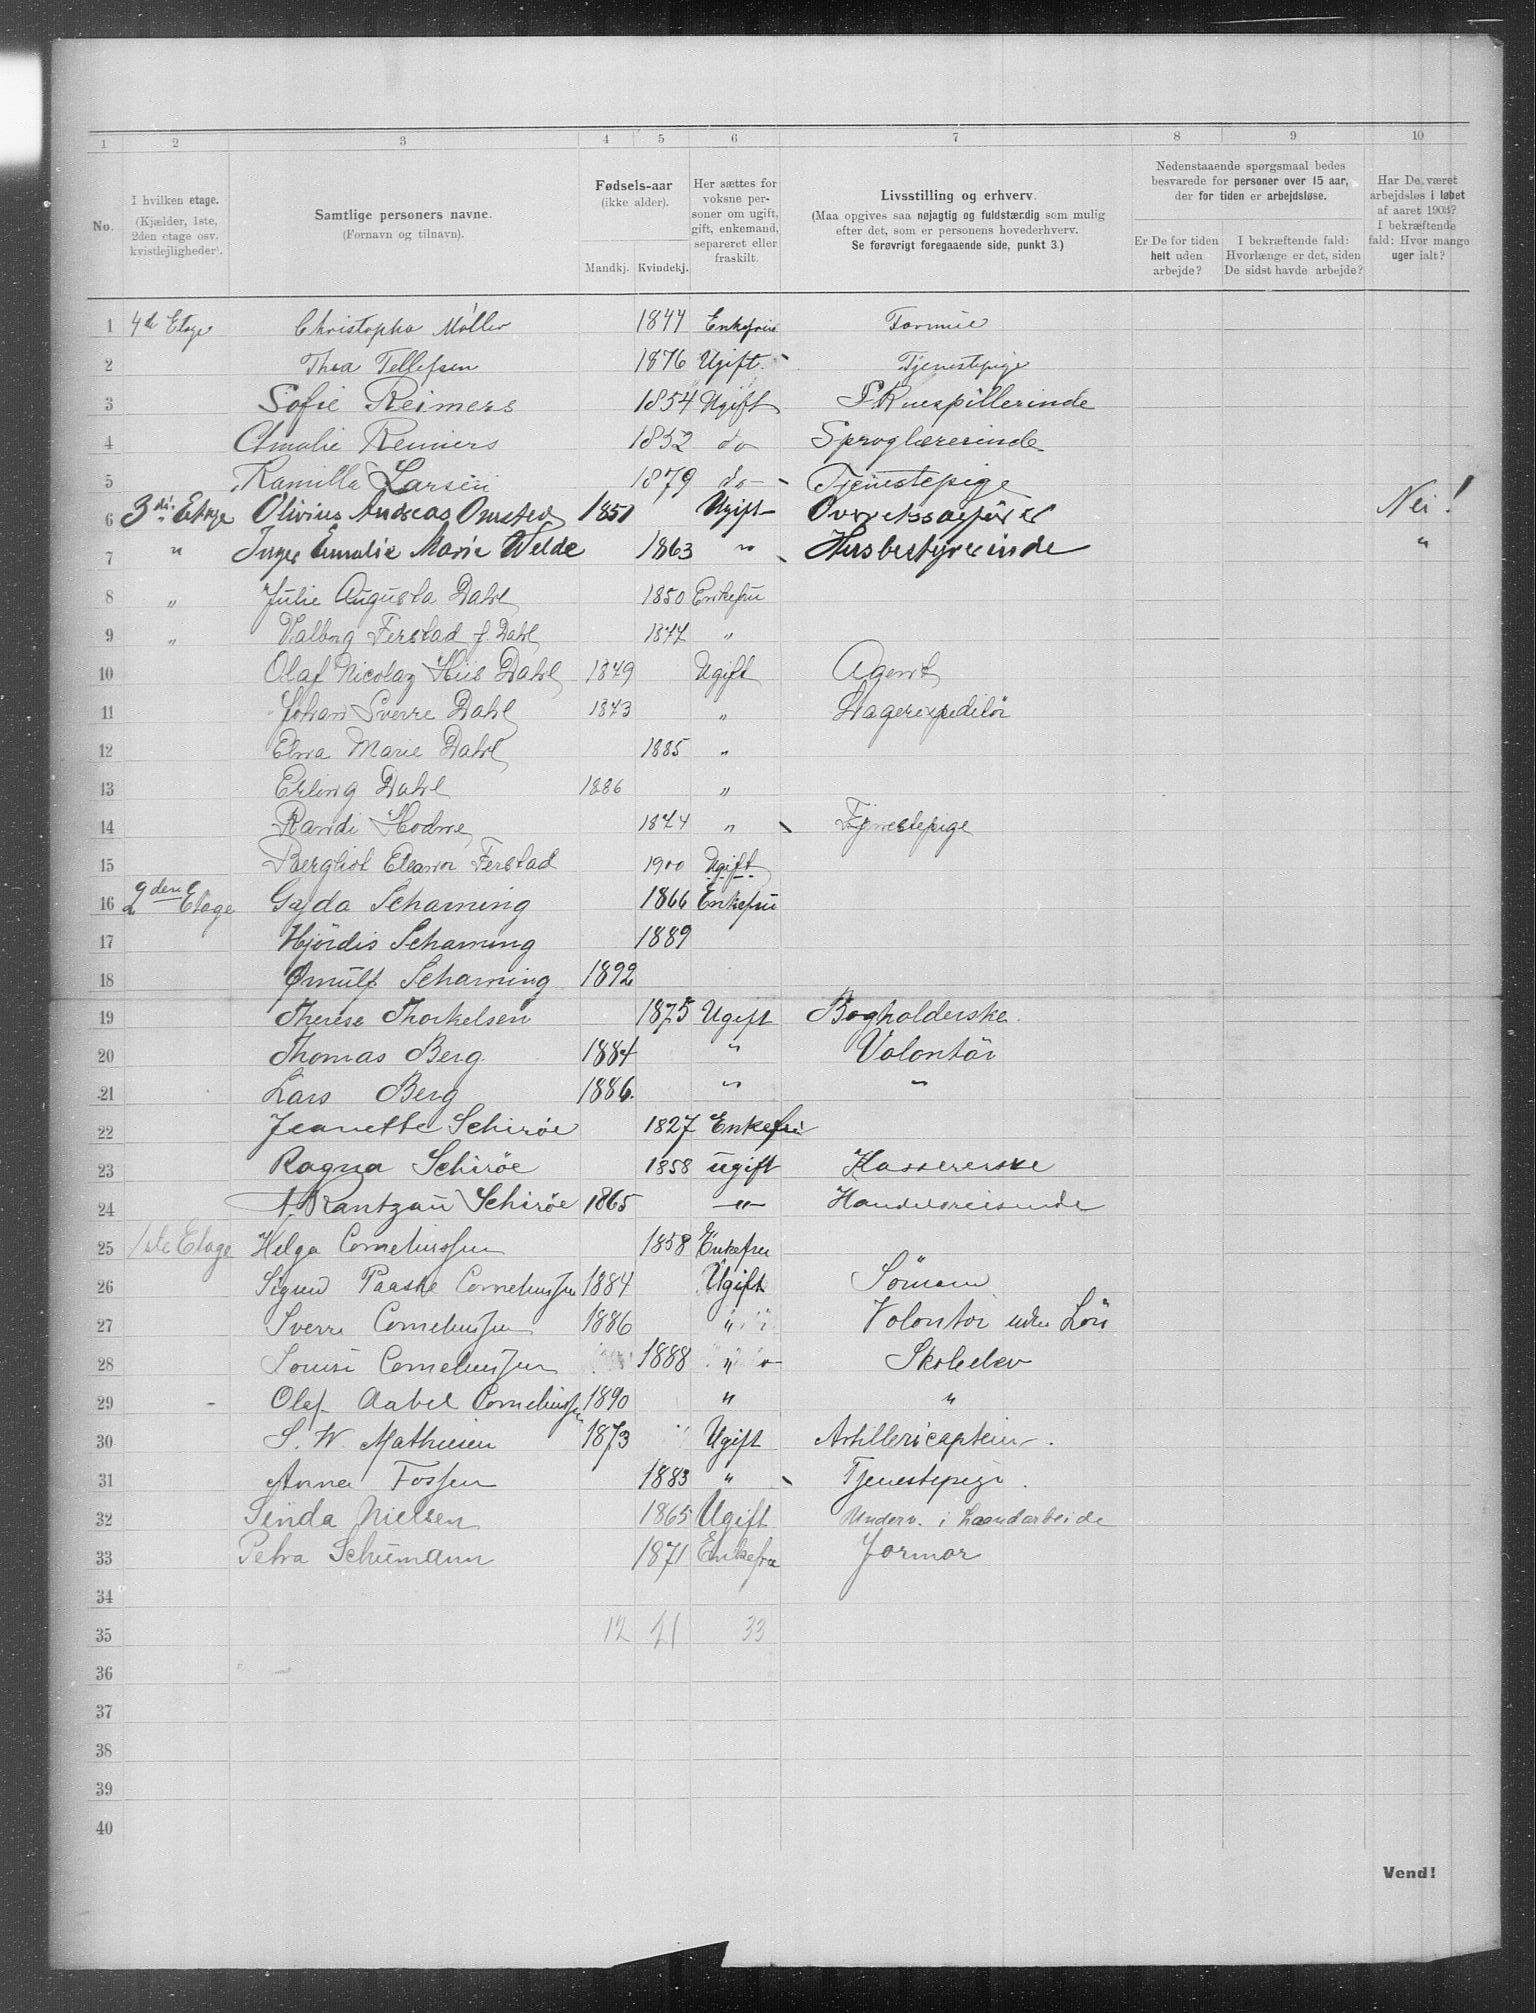 1 2 3 4 5 6 7 8 9 10
No.
I hvilken etage. (Kjælder, 1ste, 2den etage osv. kvistlejligheder).
Samtlige personers navne. (Fornavn og tilnavn).
Fødsels-aar (ikke alder).
Mandkj. Kvindekj.
Her sættes for voksne personer om ugift, gift, enkemand, separeret eller fraskilt.
Livsstilling og erhverv. (Maa opgives saa nøjagtig og fuldstændig som mulig efter det, som er personens hovederhverv. Se forøvrigt foregaaende side, punkt 3.)
Nedenstaaende spørgsmaal bedes besvarede for personer over 15 aar, der for tiden er arbejdsløse.
Er De for tiden helt uden arbejde?
I bekræftende fald: Hvorlænge er det, siden De sidst havde arbejde?
Har De været arbejdsløs i løbet af aaret 1903? I bekræftende fald: Hvor mange uger ialt?
1 4de Etage Christopha Møller 1844 Enkefrue Formue
2 Thea Tellefsen 1876 Ugift. Tjenestepige
3 Sofie Reimers 1854 Ugift Skuespillerinde
4 Amalie Reimers 1852 do Sproglærerinde
5 Kamilla Larsen 1879 do Tjenestepige
6 3die Etage Olivius Andreas Omsted 1851 Ugift Overretssagfører Nei!
7 " Inger Emalie Marie Welde 1863 " Husbestyrerinde "
8 " Julie Augusta Dahl 1850 Enkefru
9 " Valborg Ferstad f. Dahl 1877 "
10 Olaf Nicolay Hiis Dahl 1879 Ugift Agent
11 Johan Sverre Dahl 1873 " Lagerexpeditør
12 Elna Marie Dahl 1885 "
13 Erling Dahl 1886 "
14 Randi Hodne 1874 " Tjenestepige
15 Bergliot Eleanor Ferstad 1900 Ugift
16 2den Etage Gyda Scharning 1866 Enkefru
17 Hjördis Scharning 1889
18 Ørnulf Scharning 1892
19 Therese Thorkelsen 1875 Ugift Bogholderske.
20 Thomas Berg 1884 " Volontör
21 Lars Berg 1886. " "
22 Jeanette Schirøe 1827 Enkefru
23 Ragna Schirøe 1858 ugift Kassererske
24 A. Rantzau Schirøe 1865 " Handelsreisende
25 1ste Etage Helga Corneliussen 1858 Enkefru
26 Sigurd Paaske Corneliussen 1884 Ugift Sömand
27 Sverre Corneliussen 1886 " Volontör uden Lön
28 Louise Corneliussen 1888 " Skoleelev
29 Olaf Aabel Corneliussen 1890 " "
30 S. W. Mathiesen 1873 Ugift Artillericaptein.
31 Anna Fossen 1883 " Tjenestepige.
32 Linda Nielsen 1865 Ugift Underv. i Haandarbeide
33 Petra Schumann 1871 Enkefru
34
35 12 21 33
36
37
38
39
40
Vend!